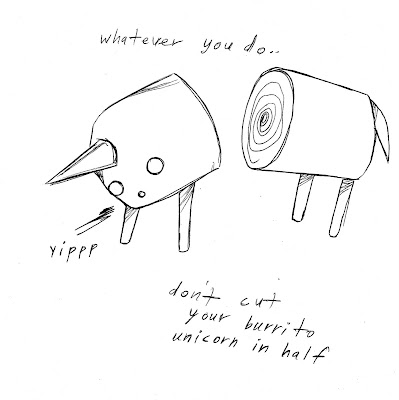 whatever you do..
yippp
don't cut
your burrito
unicorn in half